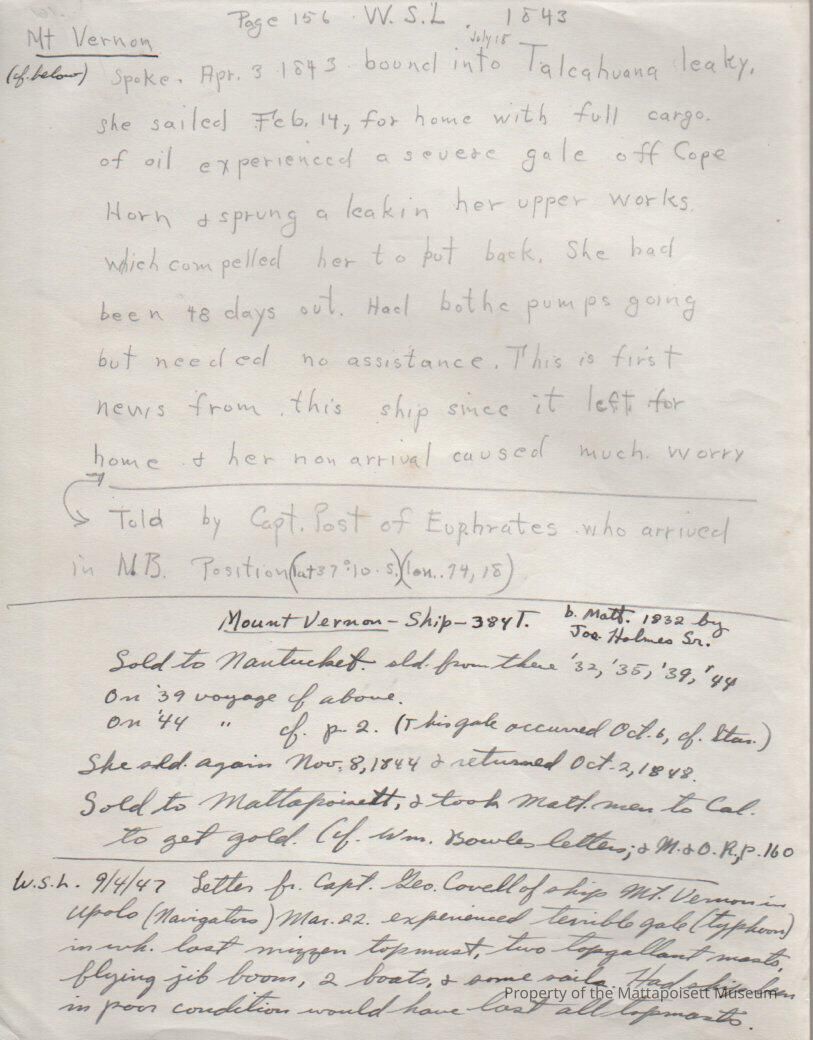 Page 156 W.S.L. 1843
Mt Vernon
July 18
(cf. below) Spoke. Apr. 3 1843 bound into Talcahuana leaky,
she sailed Feb. 14, for home with full cargo.
of oil experienced a severe gale off Cope
Horn & sprung a leak in her upper works.
which compelled her to put back. She had
been 48 days out. Had bothe pumps going
but needed no assistance. This is first
news from this ship since it left for
home & her non arrival caused much worry
Told by Capt. Post of Euphrates who arrived
in N.B. Position (lat 37°:10. S.) (lon. 74, 18)
Mount Vernon - Ship - 384 T. b. Matt. 1832 by
Joe Holmes Sr.
Sold to Nantucket. sld. from there '32, '35, '39, '44
On '39 voyage cf above.
On '44 " cf. p. 2. (This gale occurred Oct. 6, cf. Star.)
She sld. again Nov. 8, 1844 & returned Oct. 2, 1848.
Sold to Mattapoisett, & took Matt. men to Cal.
to get gold. (cf. Wm. Bowles letters; & M. & O. R, p. 160
W.S.L. 9/4/47 Letter fr. Capt. Geo. Covell of ship Mt. Vernon in
Upolo (Navigators) Mar. 22. experienced terrible gale (typhoon)
in wh. lost mizzen topmast, two topgallant masts,
flying jib boom, 2 boats, & some sails. Had ship been
in poor condition would have lost all topmasts.
Property of the Mattapoisett Museum